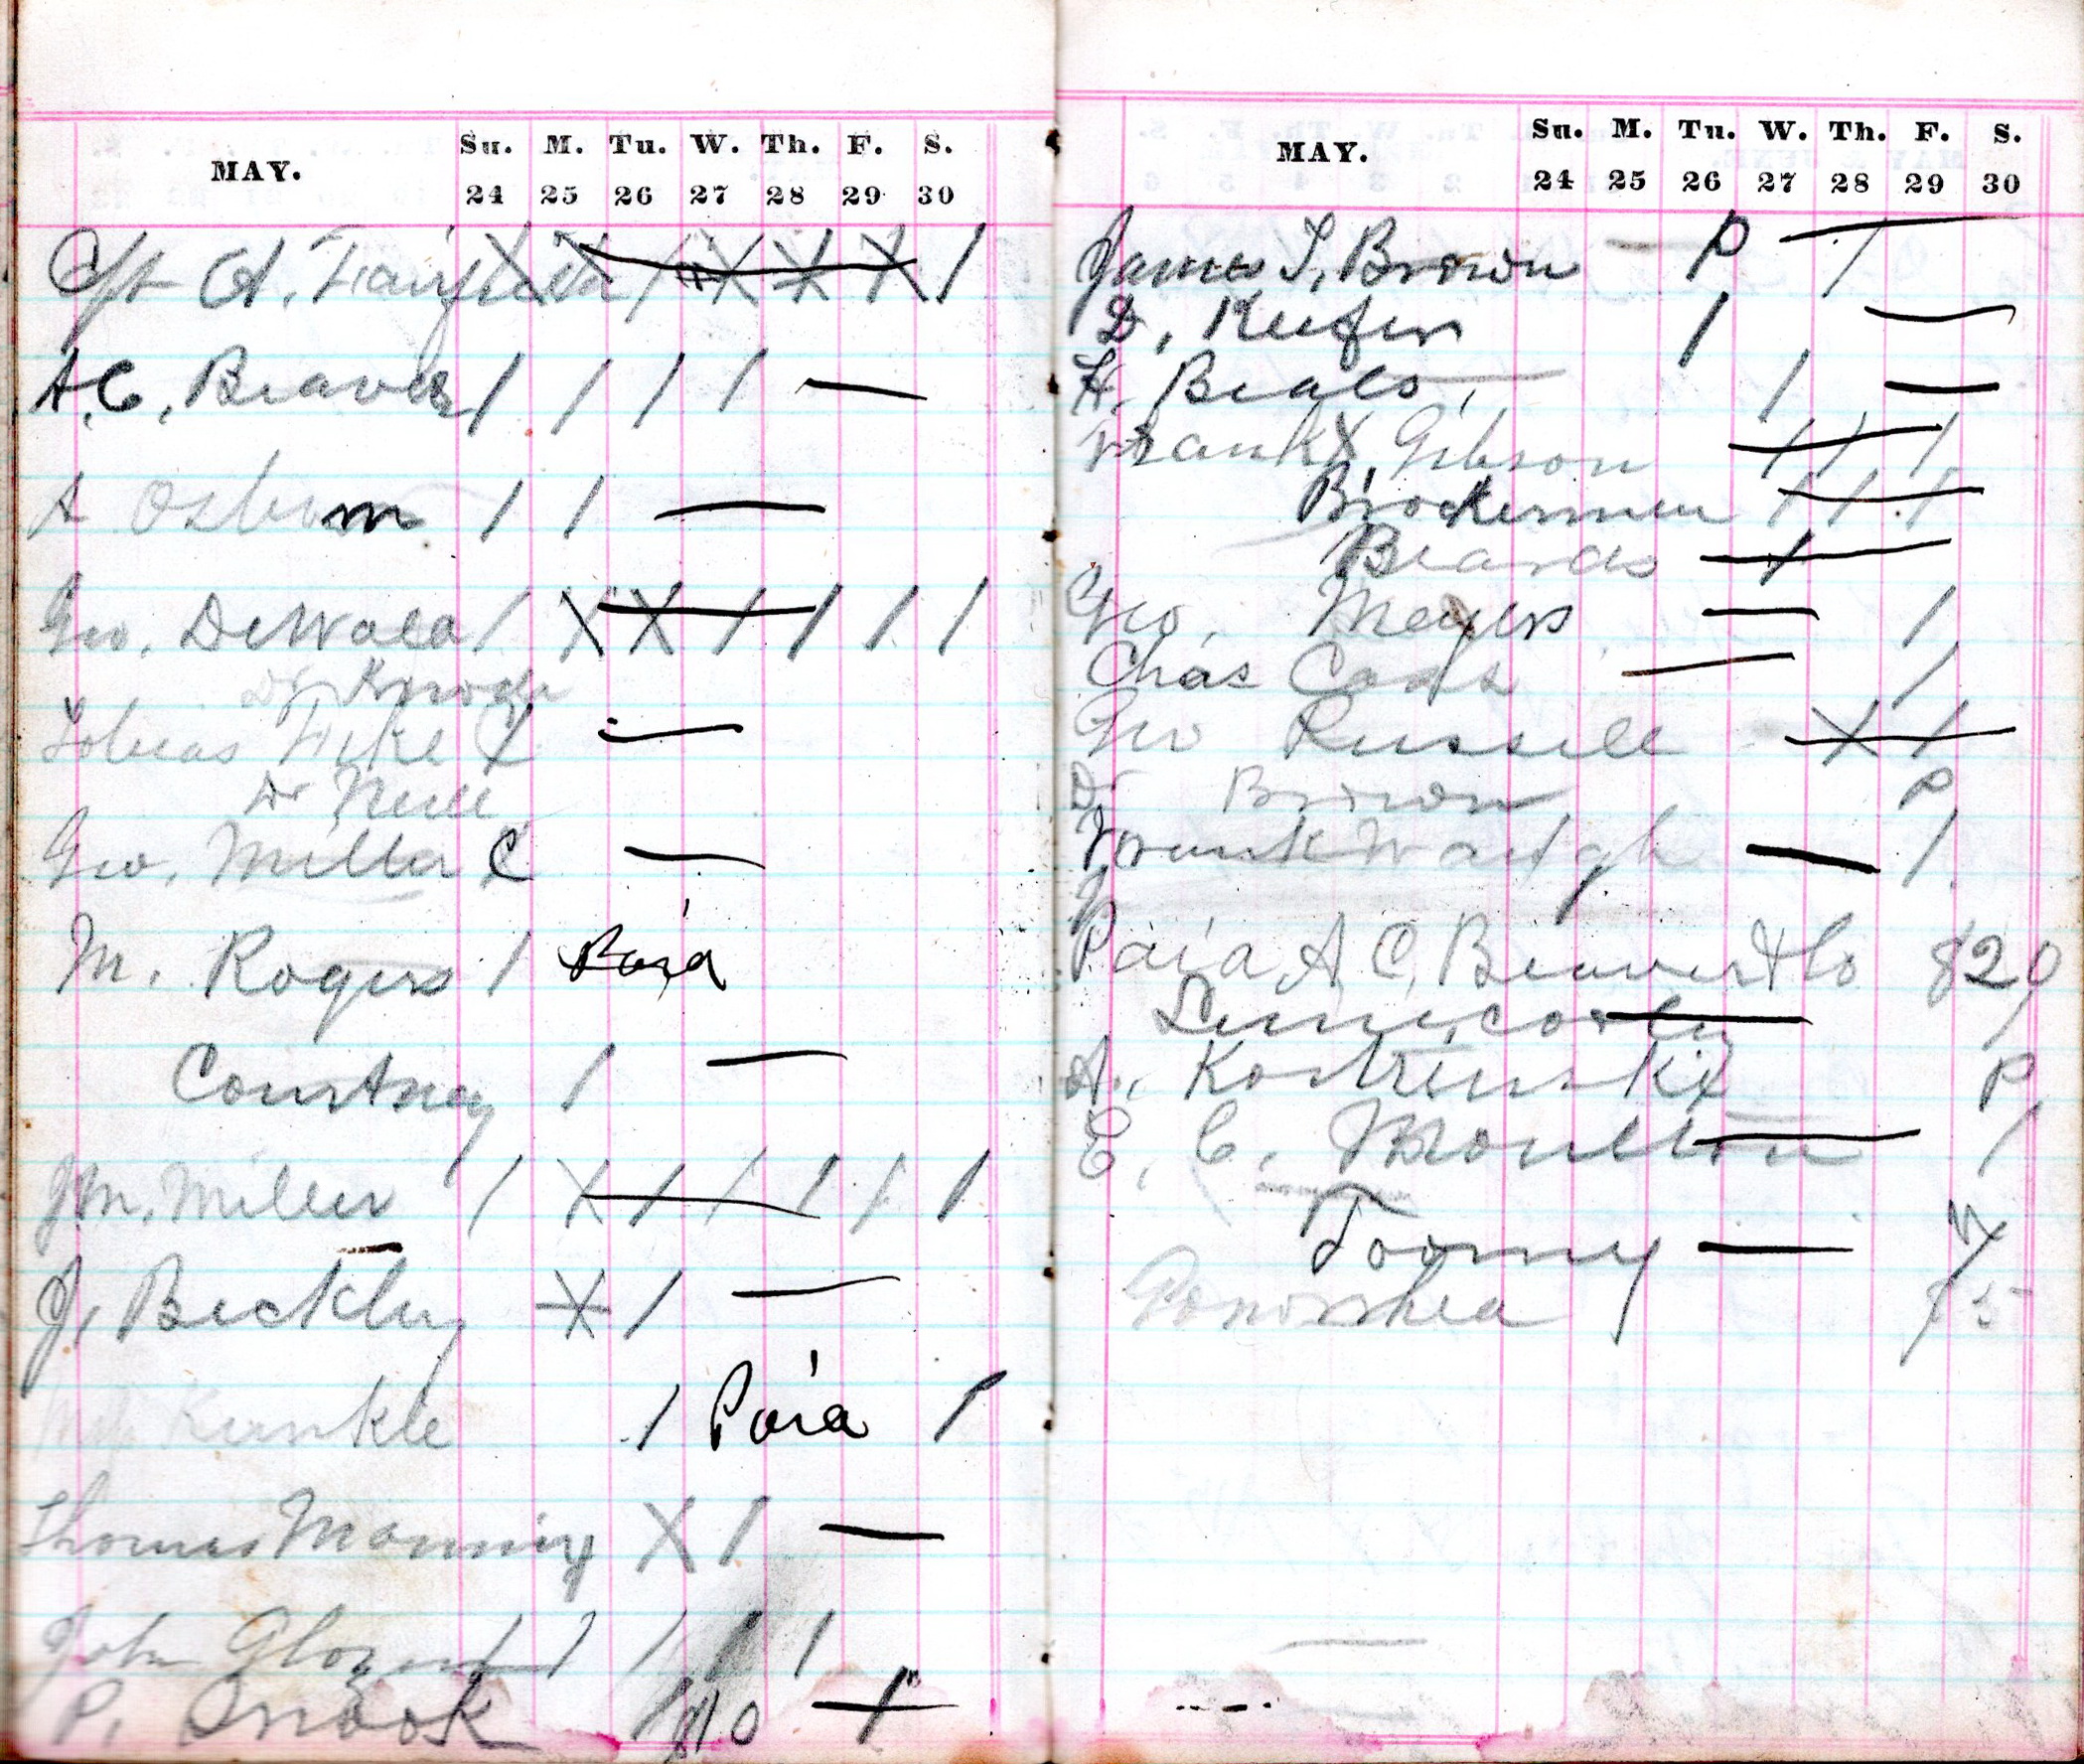 MAY. Su. M. Tu. W. Th. F. S.
24 25 26 27 28 29 30
A. Fairfield
A.C. Beaver / / / / —
A Osburn / / —
Geo. DeWald / X X / / / /
Dr
Tobias Fike C —
Dr Neill
Geo. Miller C —
M. Rogers / Paid
Courtney / —
J.M. Miller / X / / / / /
J. Beckley X / —
Kunkle / Paid P
Thomas Manning X / —
John / / / / /
P. Snook
MAY. Su. M. Tu. W. Th. F. S.
24 25 26 27 28 29 30
James T. Brown P /
D. Keefer / —
H. Beals / —
Frank Gibson / / /
Brockerman / / /
Beards /
Geo. Meyers — /
Chas — /
Geo Russell X /
Dr Brown P
Frank Waugh — /
Paid A C, Beaver & Co $20
A. P
E. C. Moulton /
Toomy —
Gonorrhea